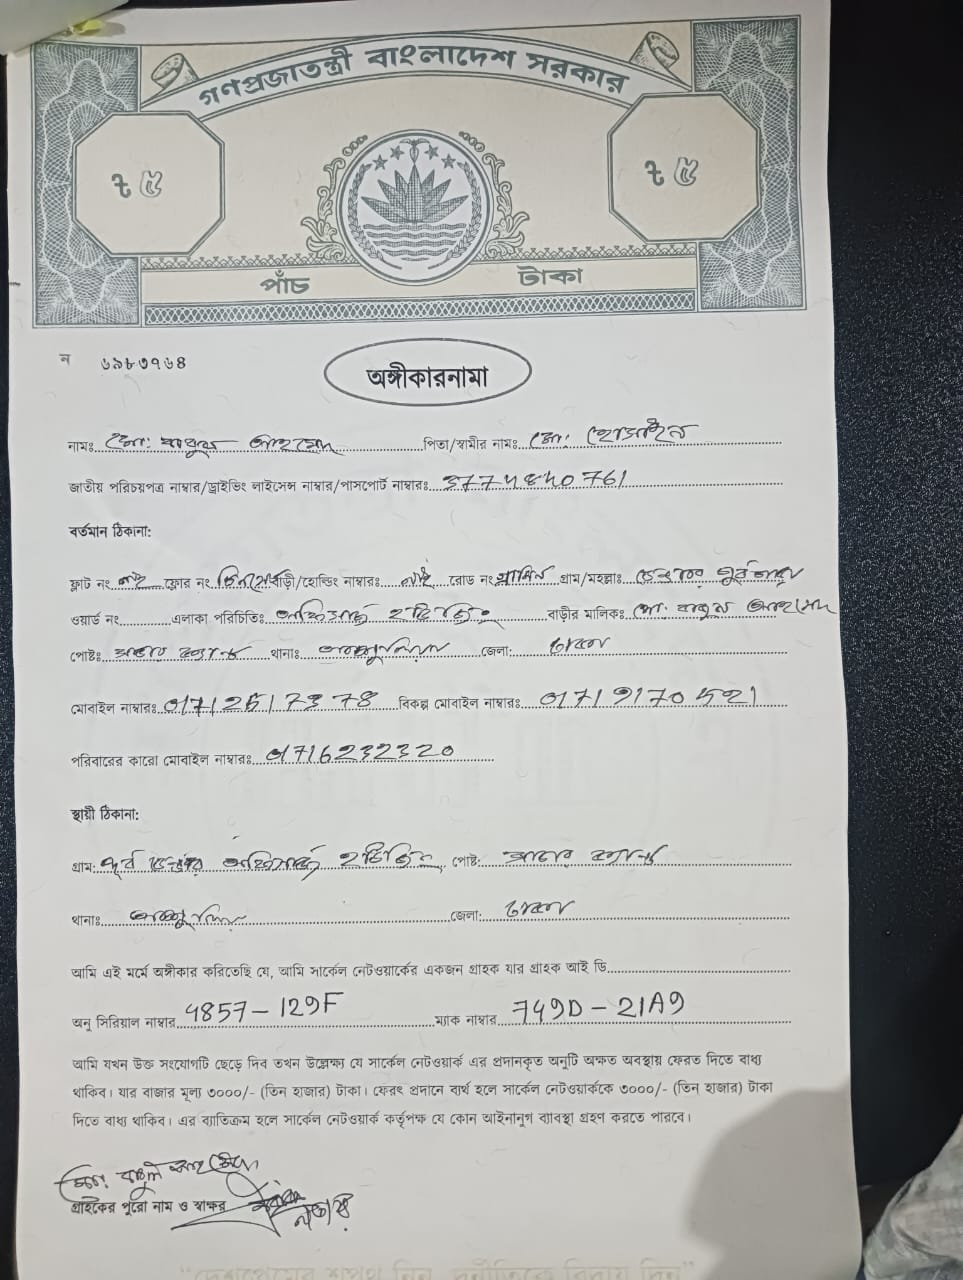 গণপ্রজাতন্ত্রী বাংলাদেশ সরকার
ট ৫ ট ৫
পাঁচ টাকা
ন ৬৯৮৩৭৬৪
অঙ্গীকারনামা
নামঃ মোঃ বাবুল আহমেদ পিতা/স্বামীর নামঃ মোঃ হোসাইন
জাতীয় পরিচয়পত্র নাম্বার/ড্রাইভিং লাইসেন্স নাম্বার/পাসপোর্ট নাম্বারঃ
বর্তমান ঠিকানা:
ফ্লাট নং নাই ফ্লোর নং বাড়ী/হোল্ডিং নাম্বারঃ নাই রোড নং গ্রাম/মহল্লাঃ
ওয়ার্ড নং এলাকা পরিচিতিঃ বাড়ীর মালিকঃ মোঃ বাবুল আহমেদ
পোষ্টঃ থানাঃ জেলা: ঢাকা
মোবাইল নাম্বারঃ 01712517378 বিকল্প মোবাইল নাম্বারঃ 01719170521
পরিবারের কারো মোবাইল নাম্বারঃ 01716232320
স্থায়ী ঠিকানা:
গ্রাম: পূর্ব পোষ্ট:
থানাঃ জেলা: ঢাকা
আমি এই মর্মে অঙ্গীকার করিতেছি যে, আমি সার্কেল নেটওয়ার্কের একজন গ্রাহক যার গ্রাহক আই ডি
অনু সিরিয়াল নাম্বার 4857-129F ম্যাক নাম্বার 749D-21A9
আমি যখন উক্ত সংযোগটি ছেড়ে দিব তখন উল্লেক্ষ্য যে সার্কেল নেটওয়ার্ক এর প্রদানকৃত অনুটি অক্ষত অবস্থায় ফেরত দিতে বাধ্য
থাকিব। যার বাজার মূল্য ৩০০০/- (তিন হাজার) টাকা। ফেরৎ প্রদানে ব্যর্থ হলে সার্কেল নেটওয়ার্ককে ৩০০০/- (তিন হাজার) টাকা
দিতে বাধ্য থাকিব। এর ব্যাতিক্রম হলে সার্কেল নেটওয়ার্ক কর্তৃপক্ষ যে কোন আইনানুগ ব্যাবস্থা গ্রহণ করতে পারবে।
মোঃ বাবুল আহমেদ
গ্রাহকের পুরো নাম ও স্বাক্ষর
"দেশপ্রেমের শপথ নিন, দুর্নীতিকে বিদায় দিন"